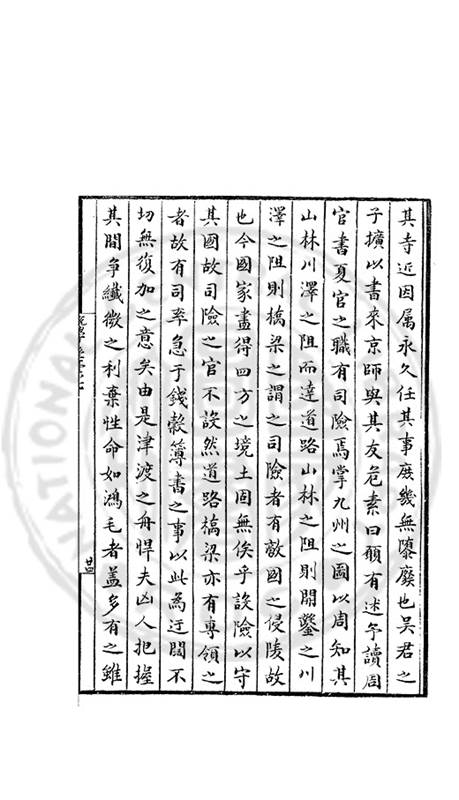 其寺近因属永久任其事庶幾無隳廢也吴君之
子擴以書來京師與其友危素曰願有述予讀周
官書夏官之職有司險焉掌九州之圖以周知其
山林川澤之阻而達道路山林之阻則開鑿之川
澤之阻則橋梁之謂之司險者有敵國之侵陵故
也今國家盡得四方之境土固無俟乎設險以守
其國故司險之官不設然道路橋梁亦有專領之
者故有司率急于錢穀簿書之事以此為迂闊不
切無復加之意矣由是津渡之舟悍夫凶人把握
其間争纖微之利棄性命如鴻毛者盖多有之雖
廿四